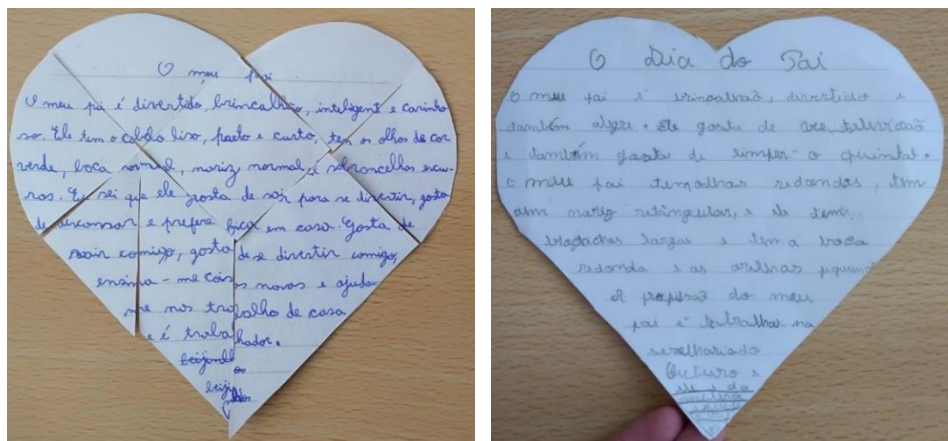 O meu pai
O meu pai é divertido, brincalhão, inteligent e carinho
so. Ele tem o cabelo liso, preto e curto, tem os olhos de cor
verde, boca normal, nariz normal, e sobrancelhas escu-
ras. Eu sei que ele gosta de sair para se divertir, gosta
de descansar e prefere fica em casa. Gosta de
sair comigo, gosta de se divertir comigo,
ensina-me coisas novas e ajuda
me nos trabalho de casa
e é trabalhador.
beijinhos
O Dia do Pai
O meu pai é brincalhão, divertido e
também alegre. Ele gosta de
e também gosta de limpar o
O meu pai tem redondos, tem
um nariz retangular, e ele tem
largas e tem a boca
redonda e as orelhas
A do meu
pai é trabalhar na